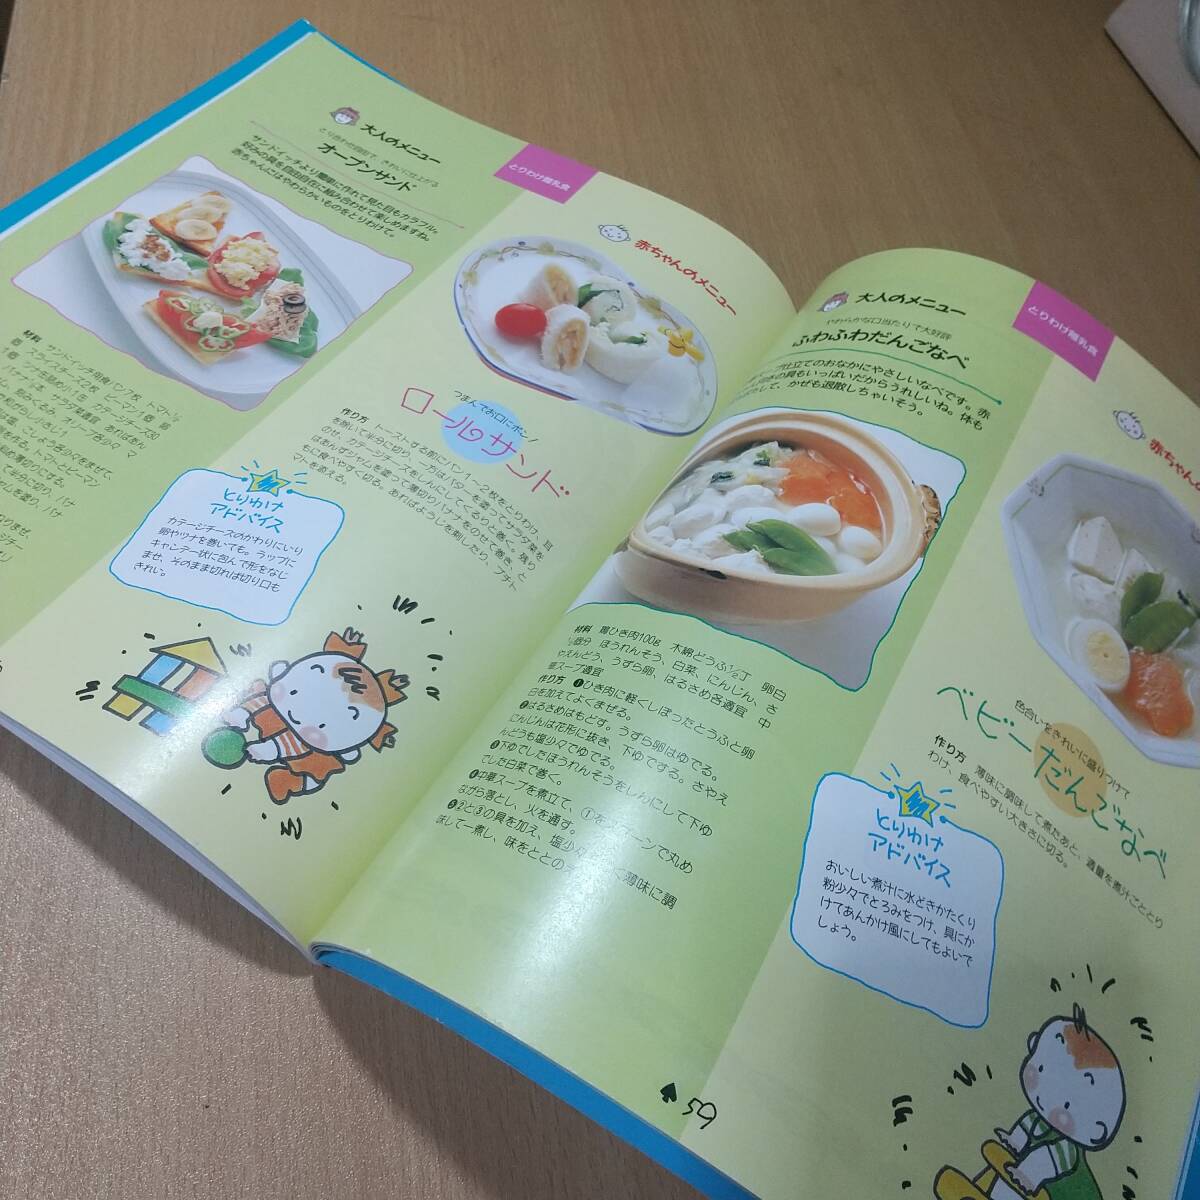 大人のメニュー
とり合わせ自在で、きれいに仕上がる
オープンサンド
サンドイッチより簡単に作れて見た目もカラフル。
好みの具を自由自在に組み合わせて楽しめますね。
赤ちゃんにはやわらかいものをとりわけて。
材料 サンドイッチ用食パン7枚 トマト½
とりわけ離乳食
赤ちゃんのメニュー
つまんでお口にポン!
ロールサンド
作り方 トーストする前にパン1〜2枚をとりわけ、耳
を除いて半分に切り、一方はバターを塗ってサラダ菜を
のせ、カテージチーズをしんにしてくるりと巻く。残り
はあんずジャムを塗って薄切りバナナをのせて巻き、と
もに食べやすく切る。あればようじを刺したり、プチト
マトを添える。
とりわけ
アドバイス
カテージチーズのかわりにいり
卵やツナを巻いても。ラップに
キャンデー状に包んで形をなじ
ませ、そのまま切れば切り口も
きれい。
大人のメニュー
やわらかな口当たりで大好評
ふわふわだんごなべ
プ仕立てのおなかにやさしいなべです。赤
好きの具もいっぱいだからうれしいね。体も
して、かぜも退散しちゃいそう。
材料 鶏ひき肉100g 木綿どうふ½丁 卵白
½個分 ほうれんそう、白菜、にんじん、さ
やえんどう、うずら卵、はるさめ各適宜 中
華スープ適宜
作り方 ❶ひき肉に軽くしぼったとうふと卵
白を加えてよくまぜる。
❷はるさめはもどす。うずら卵はゆでる。
にんじんは花形に抜き、下ゆでする。さやえ
んどうも塩少々でゆでる。
❸下ゆでしたほうれんそうをしんにして下ゆ
でした白菜で巻く。
❹中華スープを煮立て、①をスプーンで丸め
ながら落とし、火を通す。
❺②と③の具を加え、塩少々 薄味に調
味して一煮し、味をととの
59
とりわけ離乳食
赤ちゃんの
色合いをきれいに盛りつけて
ベビーだんごなべ
作り方 薄味に調味して煮たあと、適量を煮汁ごととり
わけ、食べやすい大きさに切る。
とりわけ
アドバイス
おいしい煮汁に水どきかたくり
粉少々でとろみをつけ、具にか
けてあんかけ風にしてもよいで
しょう。